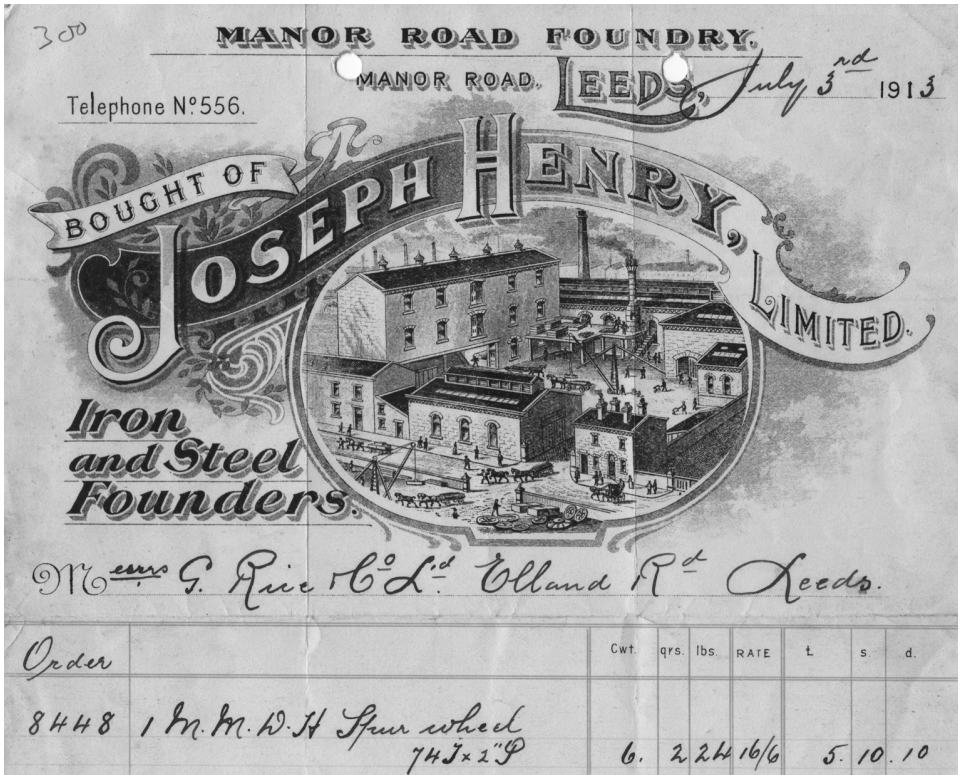 300
MANOR ROAD FOUNDRY.
MANOR ROAD. LEEDS, July 3rd 1913
Telephone No. 556.
BOUGHT OF
JOSEPH HENRY, LIMITED.
Iron
and Steel
Founders.
Messrs G. Rice & Co Ld. Elland Rd Leeds.
Order Cwt. qrs. lbs. RATE £ s. d.
8448 1 M.M.D.H Spur wheel
74T x 2"P 6. 2 24 16/6 5. 10. 10